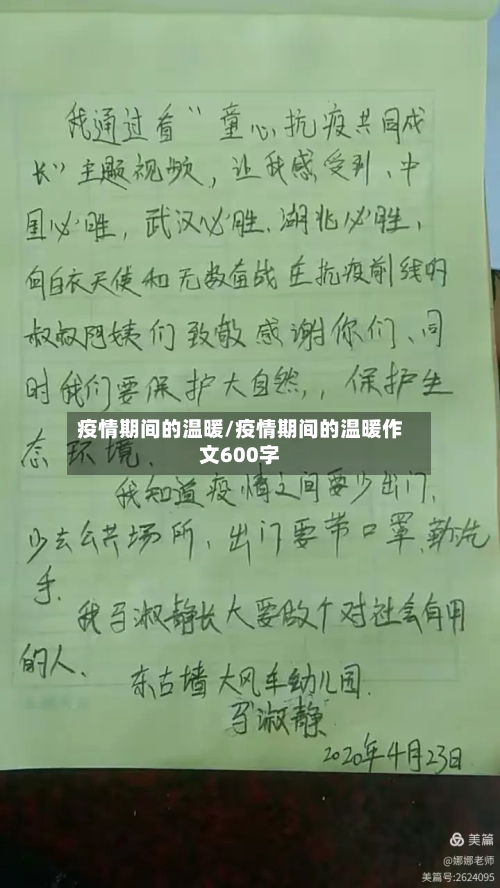 我通过看“童心抗疫共同成
长”主题视频，让我感受到、中
国必胜，武汉必胜、湖北必胜，
向白衣天使和无数奋战在抗疫前线的
叔叔阿姨们致敬感谢你们、同
时我们要保护大自然，，保护生
态环境、
疫情期间的温暖/疫情期间的温暖作
文600字
我知道疫情之间要少出门，
少去公共场所，出门要带口罩、勤洗
手.
我 淑静长大要做个对社会有用
的人、
东古墙大风车幼儿园.
淑静
2020年4月23日
美篇
@娜娜老师
美篇号:2624095